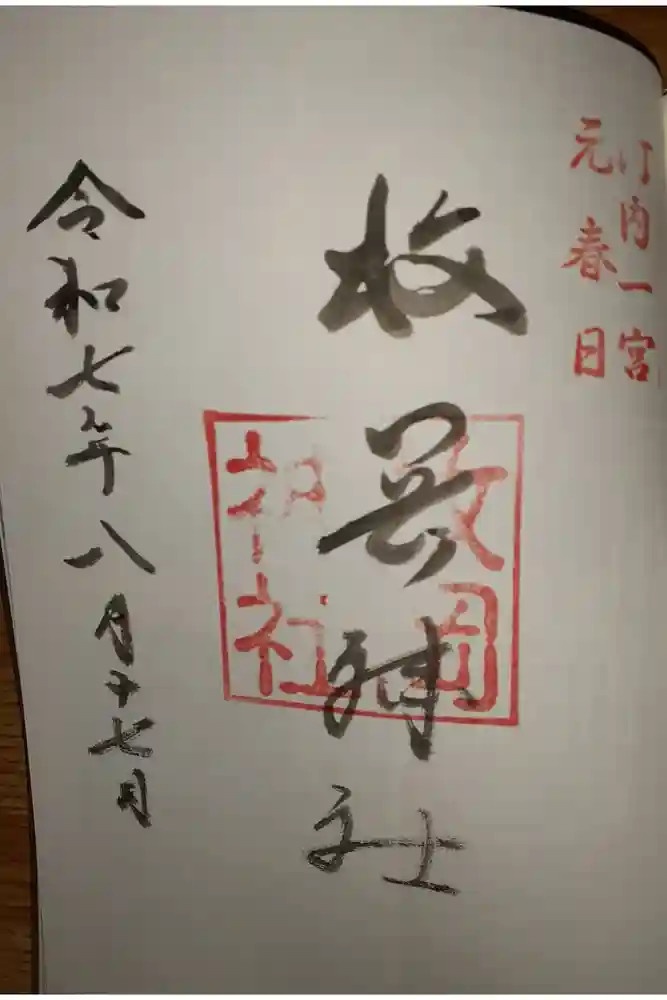 河内一宮
元春日
枚岡神社
枚岡
神社
令和七年八月十七日